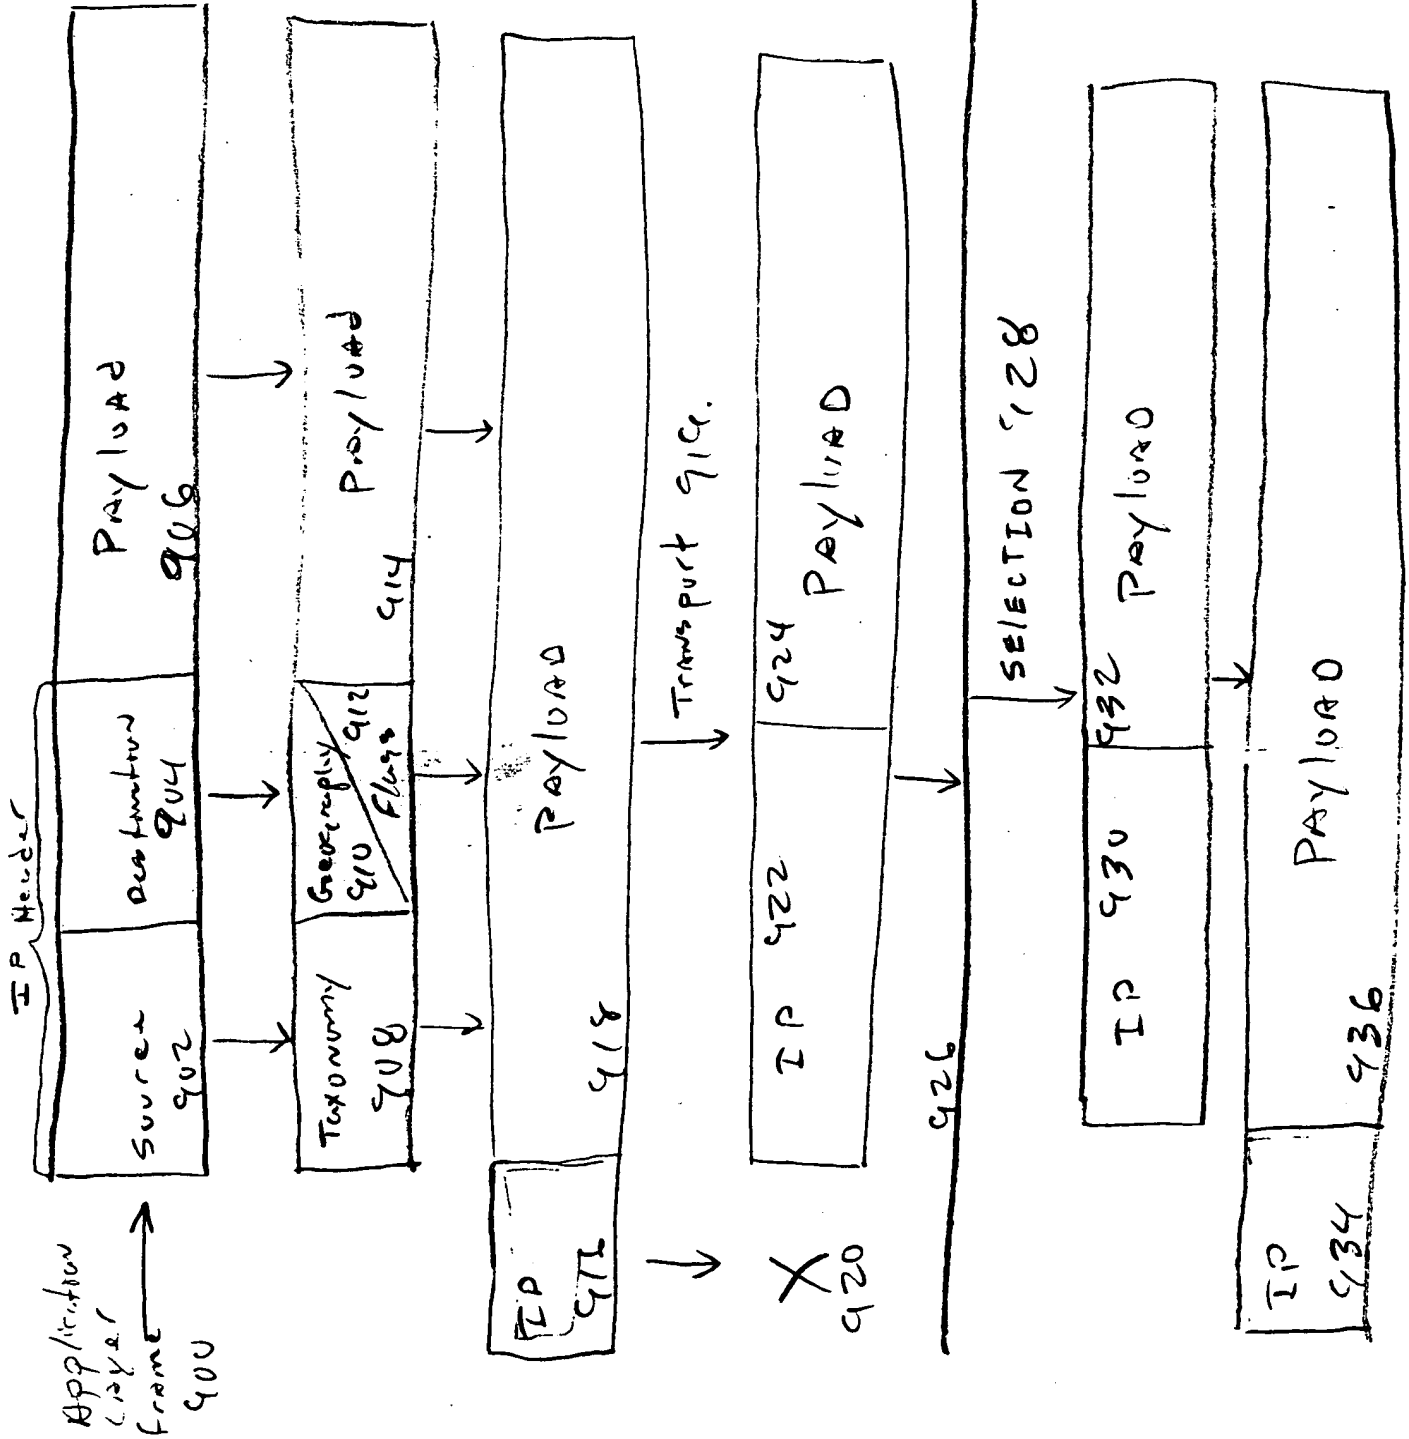 IP Header
Application
Layer
frame
900
Source
902
Destination
904
Payload
906
Taxonomy
908
Geography
910
912
Flags
914
Payload
IP
918
Payload
Transport
X
920
IP 922
924
Payload
926
SElECTION 928
IP 930
932
Payload
IP
934
936
Payload